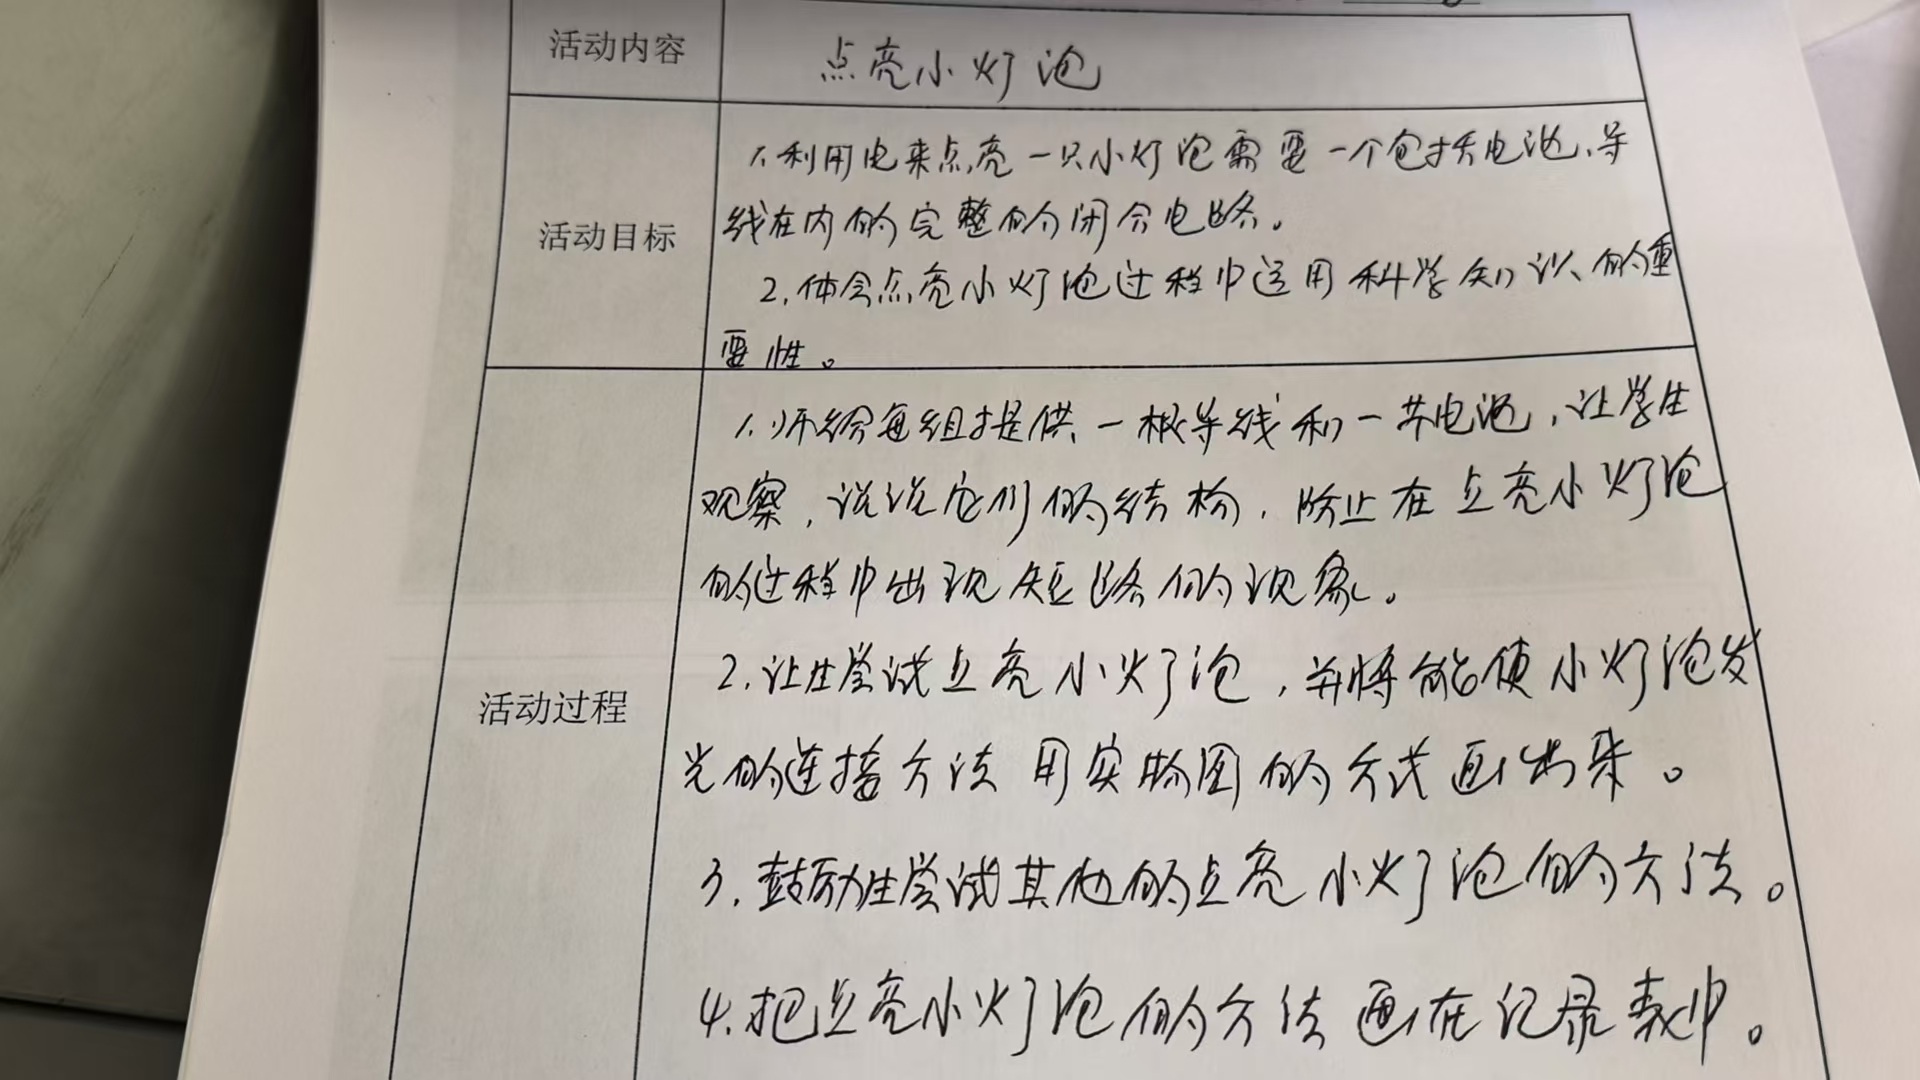 活动内容
点亮小灯泡
活动目标
1.利用电来点亮一只小灯泡需要一个包括电池、导
线在内的完整的闭合电路。
2.体会点亮小灯泡过程中运用科学知识的重
要性。
活动过程
1.师给每组提供一根导线和一节电池,让学生
观察,说说它们的结构,防止在点亮小灯泡
的过程中出现短路的现象。
2.让生尝试点亮小灯泡,并将能使小灯泡发
光的连接方法用实物图的方式画出来。
3.鼓励生尝试其他的点亮小灯泡的方法。
4.把点亮小灯泡的方法画在记录表中。